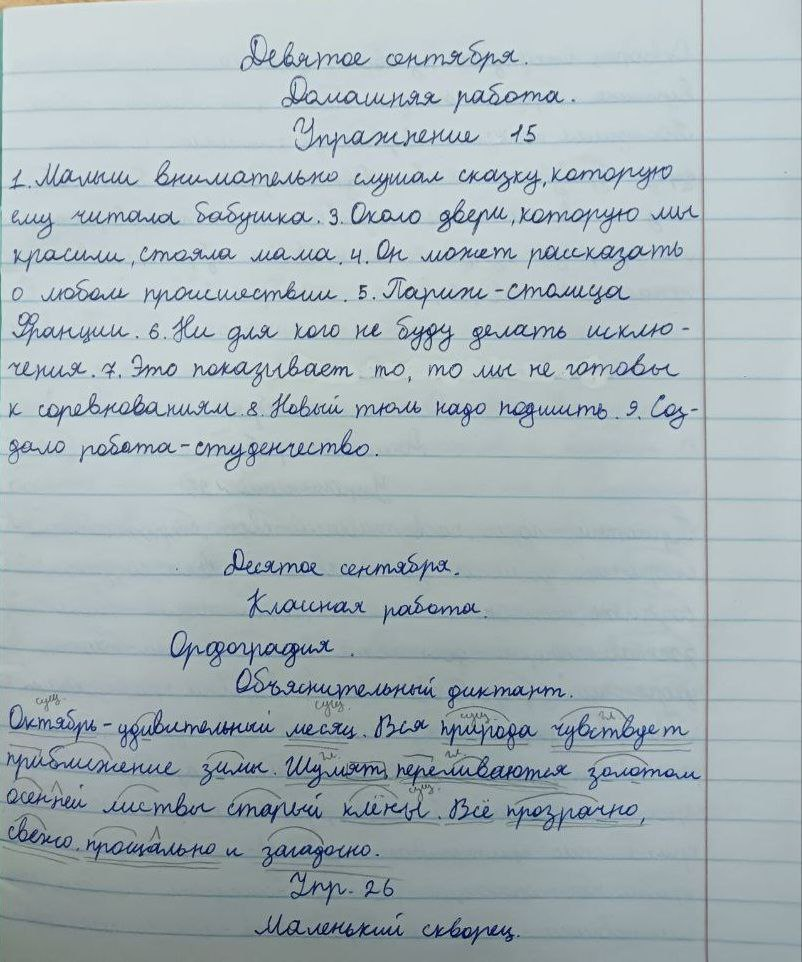 Девятое сентября.
Домашняя работа.
Упражнение 15
1. Малыш внимательно слушал сказку, которую
ему читала бабушка. 3. Около двери, которую мы
красили, стояла мама. 4. Он может рассказать
о любом происшествии. 5. Париж-столица
Франции. 6. Ни для кого не буду делать исклю-
чения. 7. Это показывает то, то мы не готовы
к соревнованиям. 8. Новый тюль надо подшить. 9. Соз-
дало робота-студенчество.
Десятое сентября.
Классная работа.
Орфография.
Объяснительный диктант.
сущ. сущ. сущ. гл.
Октябрь-удивительный месяц. Вся природа чувствует
гл. гл.
приближение зимы. Шумят, переливаются золотом
сущ.
осенней листвы старый клёны. Всё прозрачно,
свежо, прощально и загадочно.
Упр. 26
Маленький скворец.